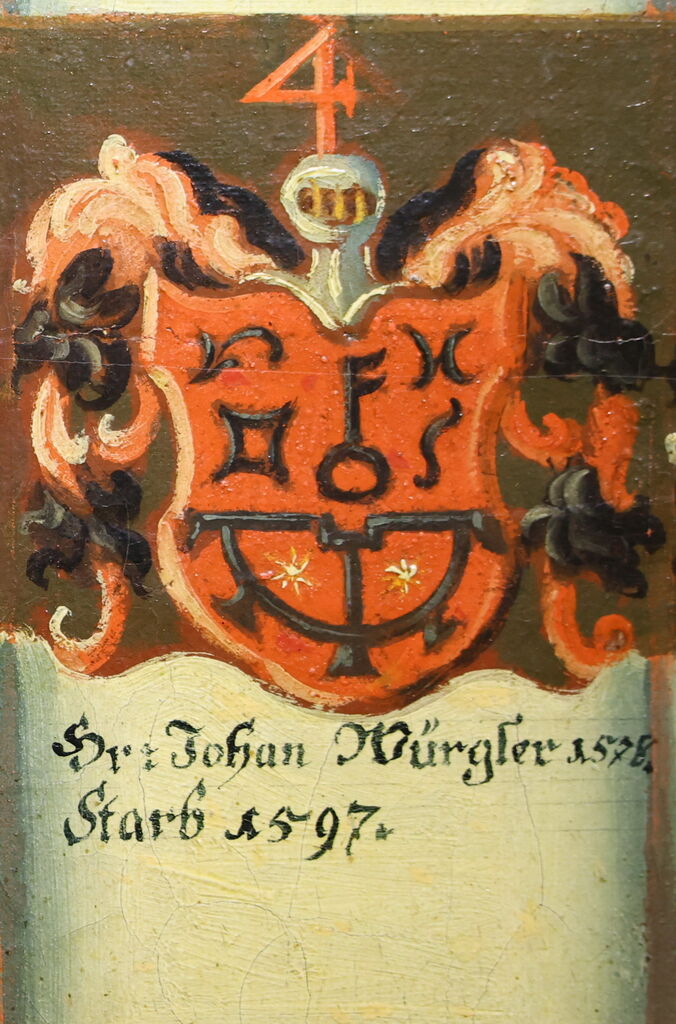 Hr: Johan Würgler 1578.
Starb 1597.